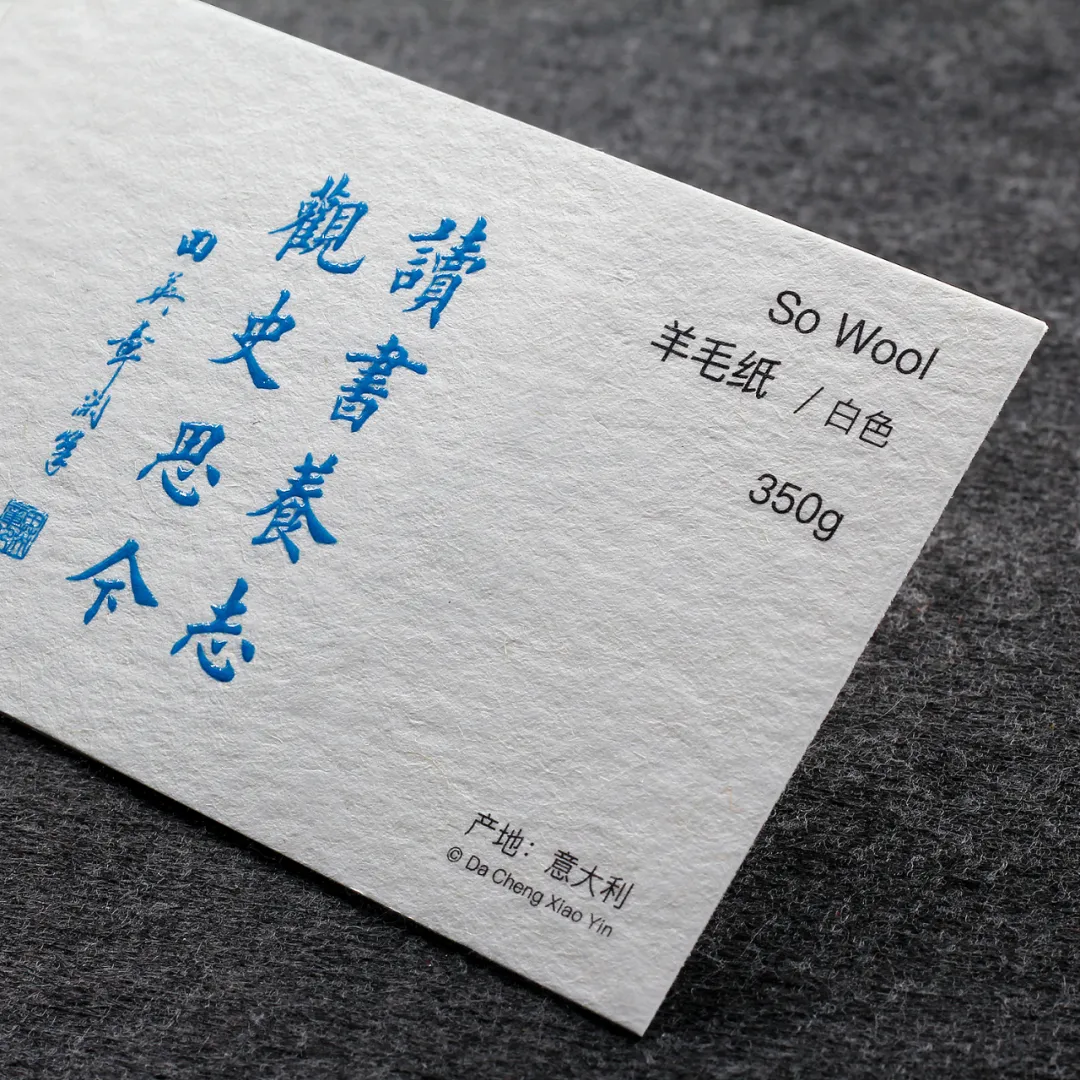 讀書養志
觀史思今
So Wool
羊毛纸 / 白色
350g
产地：意大利
© Da Cheng Xiao Yin